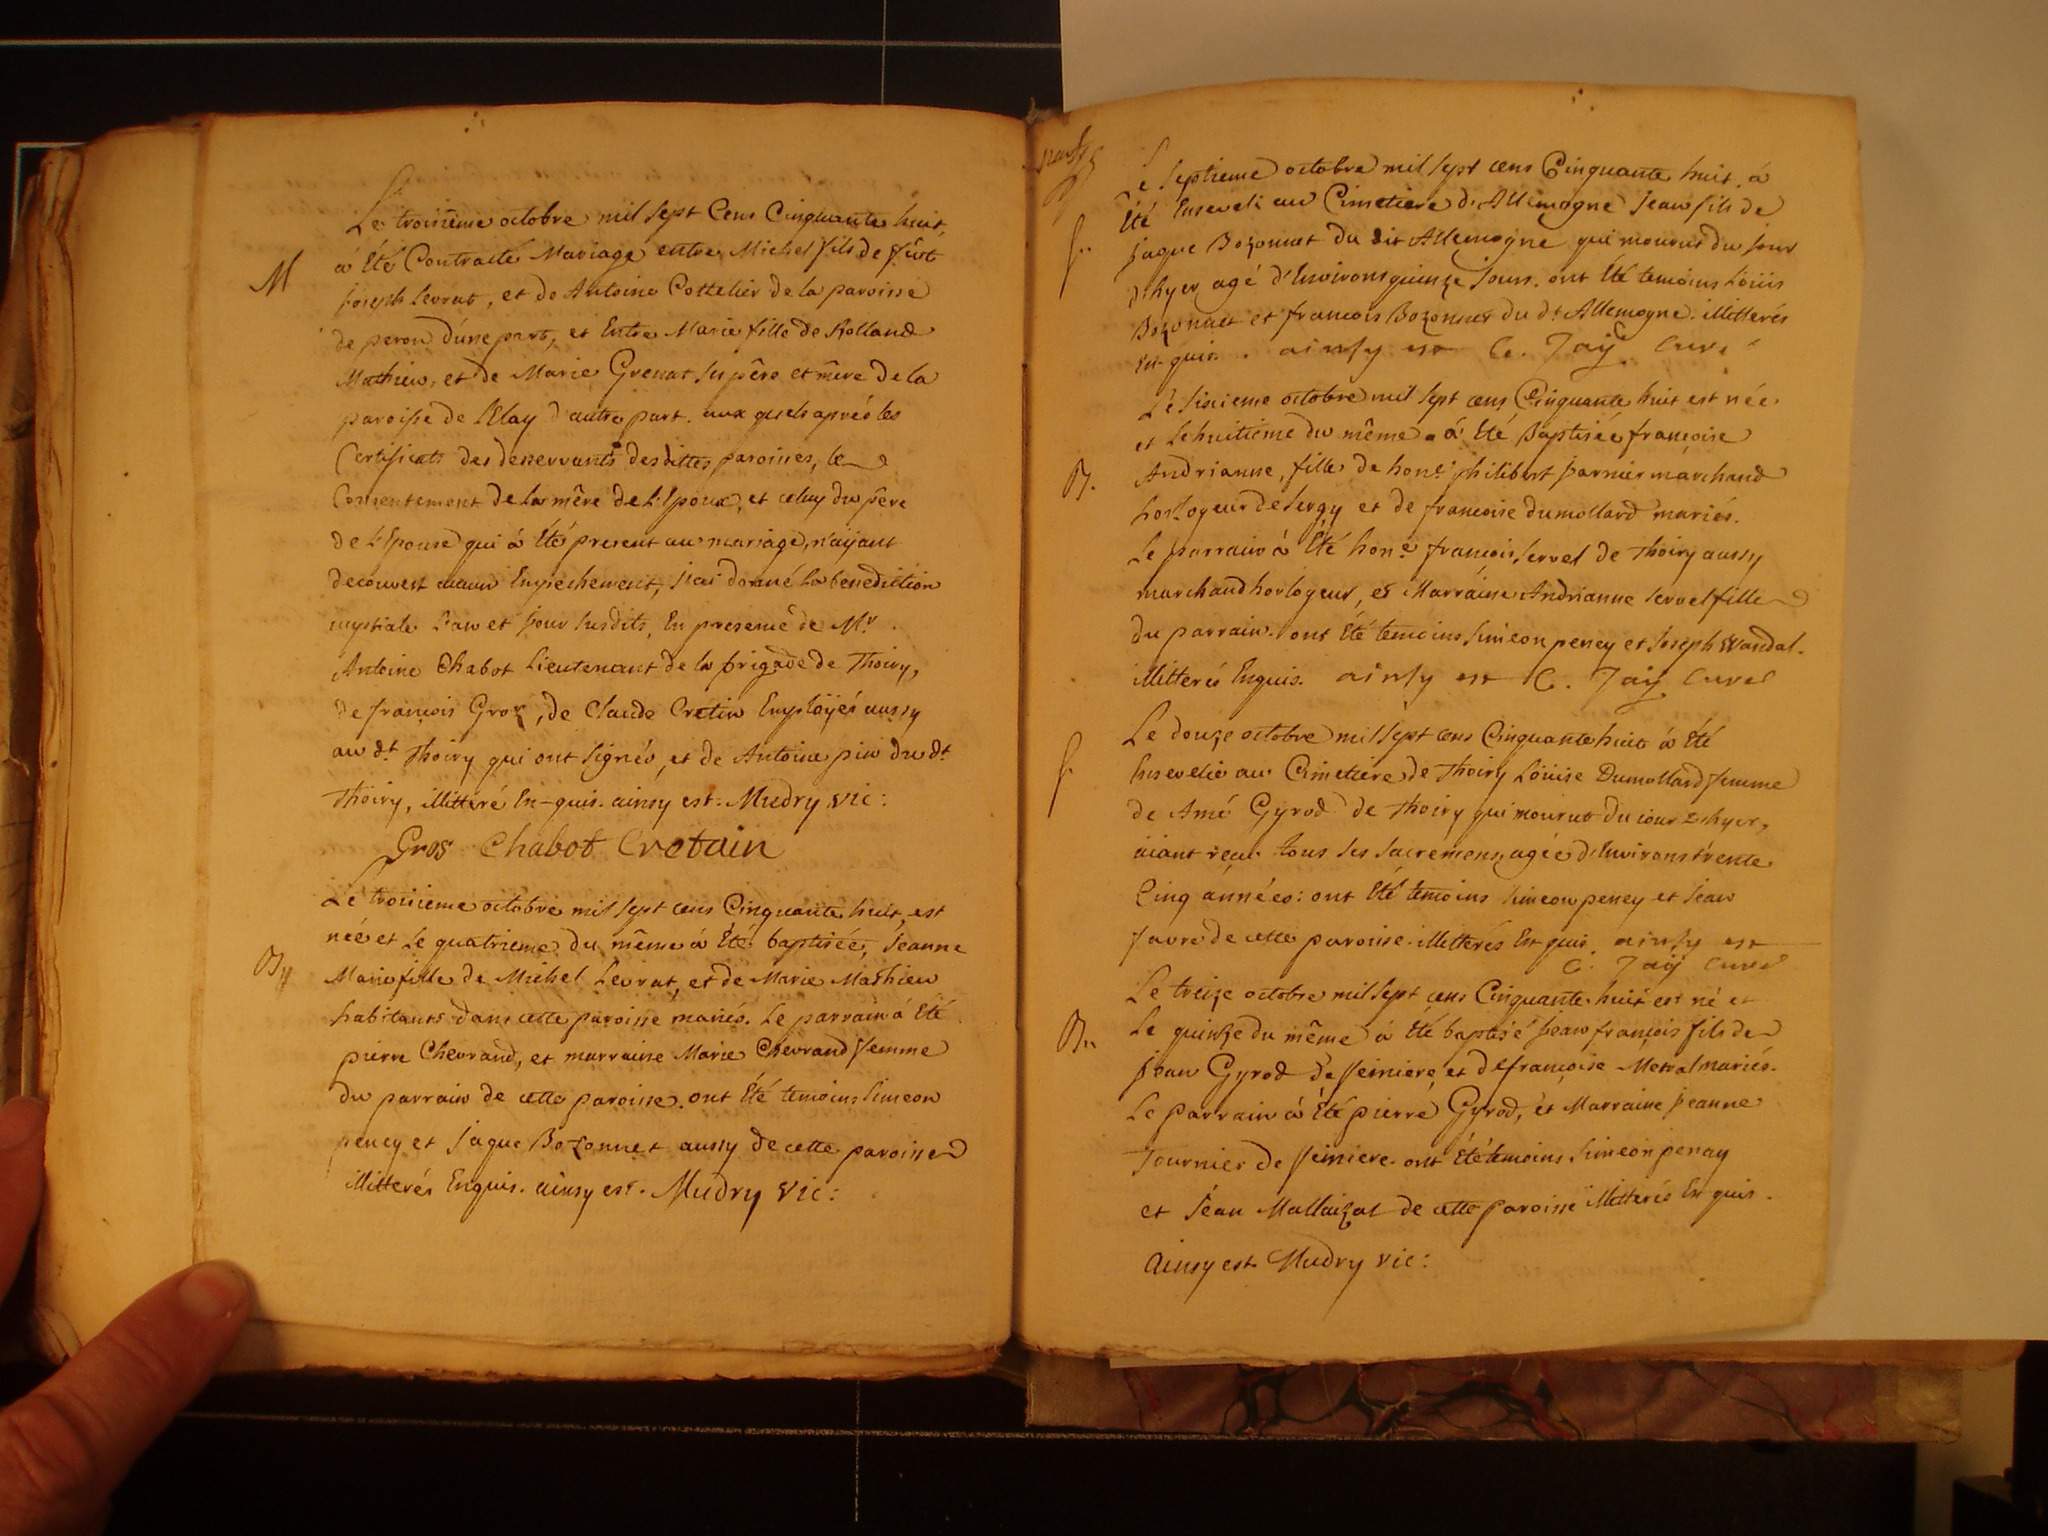 Le troisième octobre mil sept Cens Cinquante huit,
M
à Eté Contracté Mariage entre Michel fils de feüt
Joseph Levrat, et de Antoine Cottelier de la paroisse
de peron d'une part, et Entre Marie fille de Rolland
Mathieu, et de Marie Grenat ses père et mère de la
paroisse de l'Elay d'autre part. aux quels après les
Certificats des desservants desdittes paroisses, le
Consentement de la mère de l'Epoux, et celuy du père
de l'Epouse qui à Eté present au mariage, n'aÿant
decouvert aucun Empechement, j'ai donné la bénediction
nuptiale l'an et jour susdits, En presence de Mr.
Antoine Chabot Lieutenant de la brigade de Thoiry,
de françois Grox, de Claude Cretin Employés aussy
au dt. Thoiry qui ont signés, et de Antoine pin du dt.
Thoiry, illitteré En-quis. ainsy est. Mudry vic:
Gros Chabot Cretain
Le troisieme octobre mil sept cens Cinquante huit est
née et Le quatrieme du même à Eté baptisée, Jeanne
B
Marie fille de Michel Levrat, et de Marie Mathieu
habitants dans cette paroisse mariés. Le parrain à Eté
pierre Chevrand, et marraine Marie Chevrand femme
du parrain de cette paroisse. ont Eté temoins Simeon
peney et Jaque Bozonnet aussy de cette paroisse
illitterés Enquis. ainsy est. Mudry vic:
Le Septieme octobre mil sept cens Cinquante huit. à
Eté Enseveli au Cimetiere d'Allemogne Jean fils de
S..
Jaque Bozonnet du dit Allemogne qui mourut du jour
d'hyer agé d'Environs quinze jours. ont Eté temoins Loüis
Bozonnet et francois Bozonnet du dt. Allemogne. illitterés
En-quis. ainsy est C. Jaÿ Curé
Le sixieme octobre mil sept cens Cinquante huit est née
et Le huitieme du même à Eté Baptisée françoise
B.
Andrianne, fille de hone. philibert parnier marchand
horlogeur de Sergy et de françoise dumollard mariés.
Le parrain à Eté hone françois Servel de Thoiry aussy
marchand horlogeur, et Marraine Andrianne Servel fille
du parrain. ont Eté temoins Simeon peney et Joseph Wandal.
illitterés Enquis. ainsy est C. Jaÿ Curé
Le douze octobre mil sept cens Cinquante huit à Eté
S.
Ensevelie au Cimetiere de Thoiry Loüise Dumollard femme
de Amé Gyrod de Thoiry qui mourut du jour d'hyer,
aiant reçu tous ses sacremens, agée d'Environs trente
Cinq années: ont Eté temoins Simeon peney et Jean
favre de cette paroisse. illitterés Enquis ainsy est
C. Jaÿ Curé
Le treize octobre mil sept cens Cinquante huit est né et
B..
Le quinze du même à Eté baptisé Jean françois fils de
Jean Gyrod de feiniere, et de françoise Metral mariés.
Le parrain à Eté pierre Gyrod, et Marraine Jeanne
Tournier de feiniere. ont Eté temoins Simeon penay
et Jean Mallaizat de cette paroisse illitterés Enquis.
Ainsy est Mudry vic: